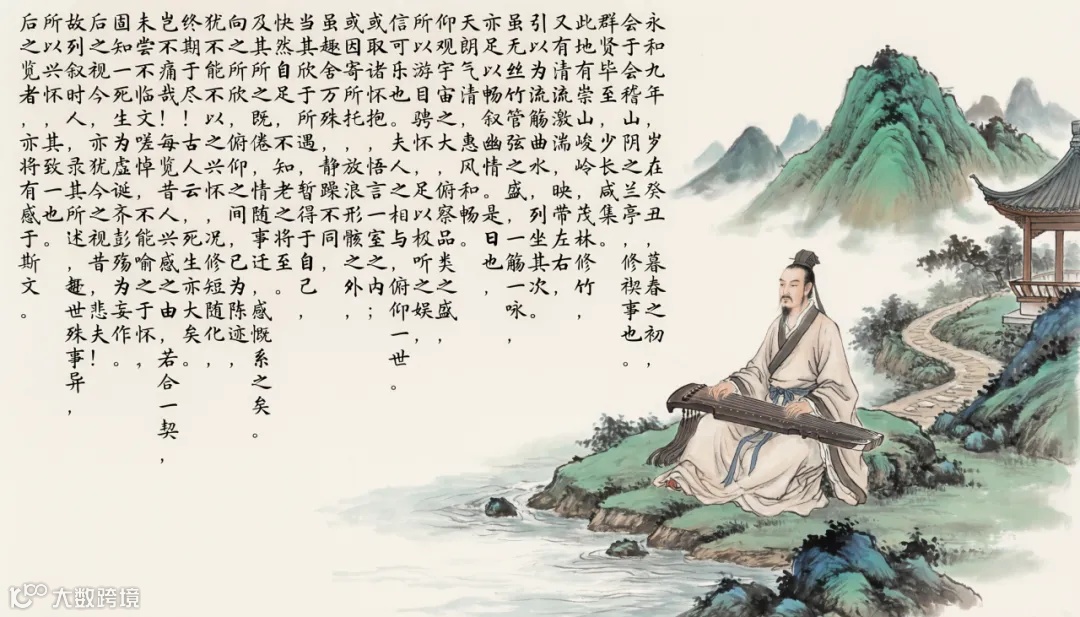 永和九年，岁在癸丑，暮春之初，
会于会稽山阴之兰亭，修禊事也。
群贤毕至，少长咸集。
此地有崇山峻岭，茂林修竹，
又有清流激湍，映带左右，
引以为流筋曲水，列坐其次，
虽无丝竹管弦之盛，一筋一咏，
亦足以畅叙幽情。是日也，
天朗气清，惠风和畅。
仰观宇宙之大，俯察品类之盛，
所以游目骋怀，足以极听之娱，
信可乐也。夫人之相与，俯仰一世。
或取诸怀抱，悟言一室之内；
或因寄所托，放浪形骸之外，
虽趣舍万殊，静躁不同，
当其欣于所遇，暂得于自己，
快然自足，不知老之将至。
及其所之既倦，情随事迁，感慨系之矣。
向之所欣，俯仰之间，已为陈迹，
犹不能不以之兴怀，况修短随化，
终期于尽！古人云，死生亦大矣。
岂不痛哉！每览昔人兴感之由，若合一契，
未尝不临文嗟悼，不能喻之于怀，
固知一死生为虚诞，齐彭殇为妄作。
后之视今，亦犹今之视昔，悲夫！
故列叙时人，录其所述，趣世殊事异，
所以兴怀，其致一也。
后之览者，亦将有感于斯文。
大数跨境